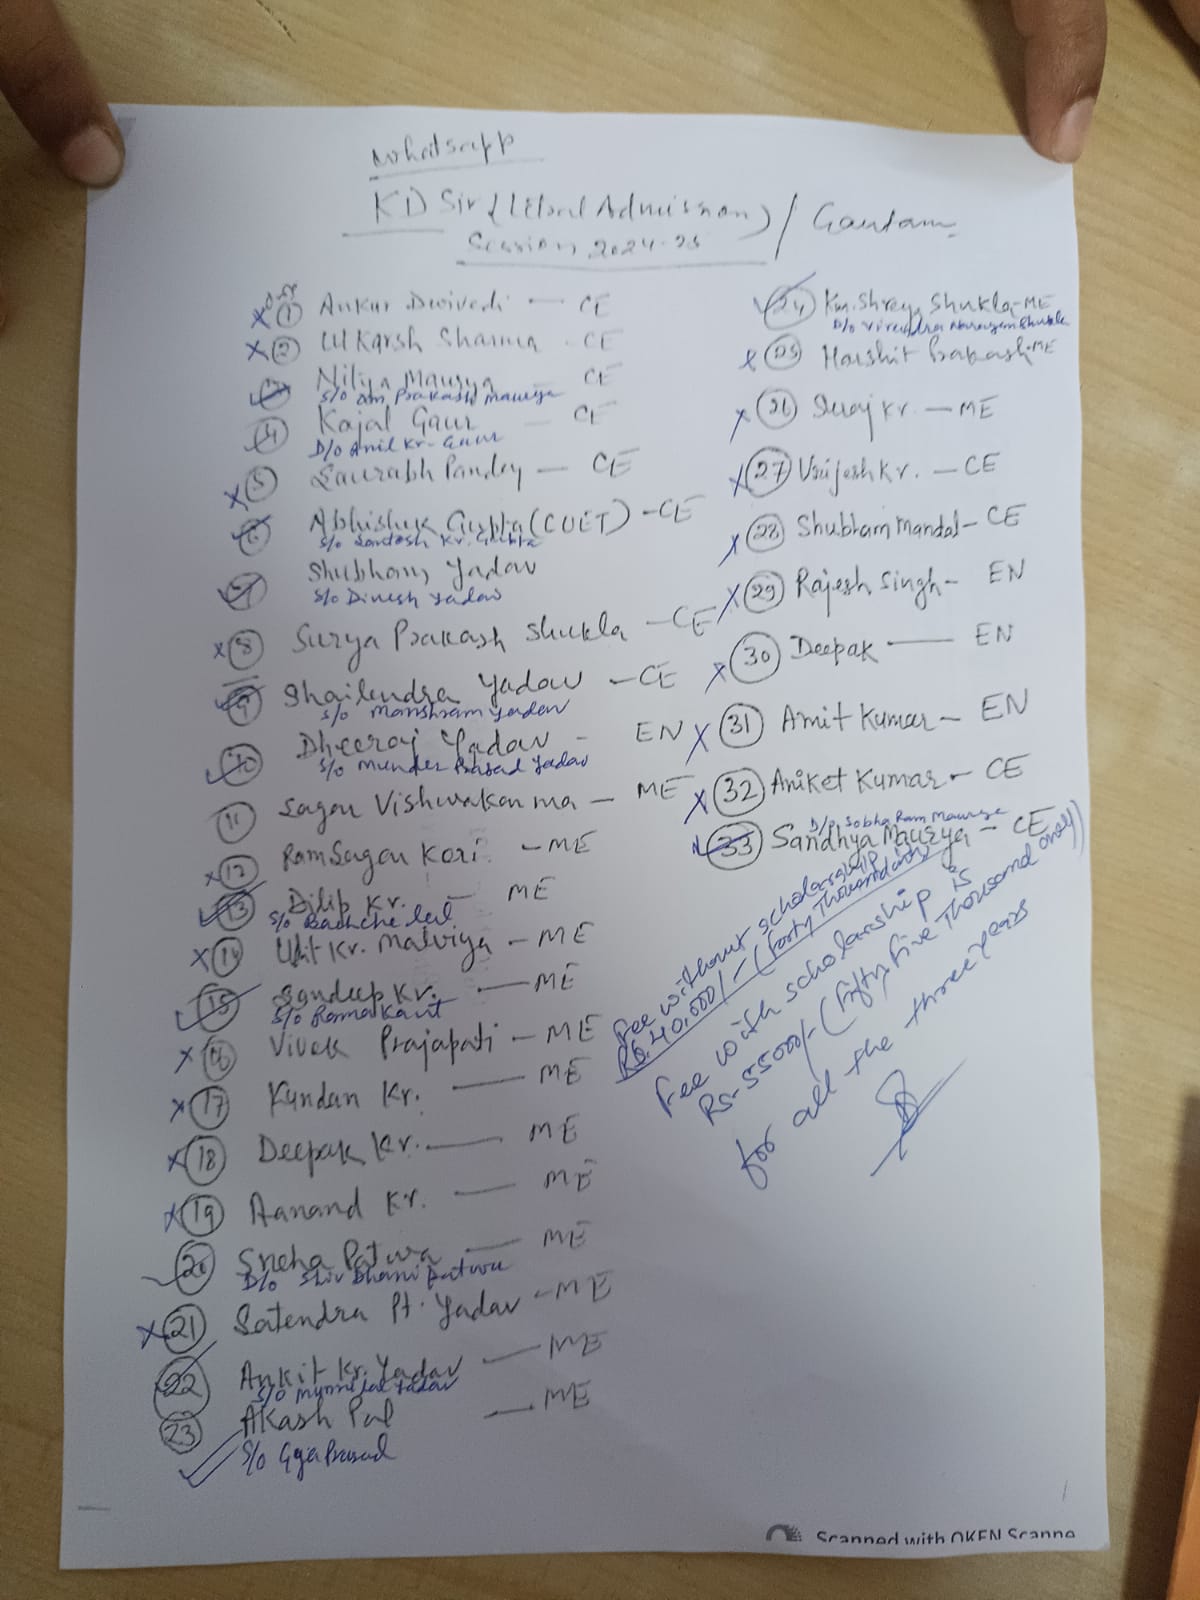 Whatsapp
KD Sir (Lateral Admission) / Gautam
Session 2024-25
① Ankur Dwivedi — CE
② Utkarsh Sharma - CE
Nitya Maurya — CE
S/o Om Prakash Maurya
④ Kajal Gaur — CE
D/o Anil Kr. Gaur
⑤ Saurabh Pandey — CE
⑥ Abhishek Gupta (CUET) - CE
S/o Santosh Kr. Gupta
⑦ Shubham Yadav
S/o Dinesh Yadav
⑧ Surya Prakash Shukla — CE
⑨ Shailendra Yadav — CE
S/o Manshram Yadav
⑩ Dheeraj Yadav - EN
S/o Munder Prasad Yadav
⑪ Sagar Vishwakarma — ME
⑫ Ram Sagar Kori - ME
⑬ Dilip Kr. — ME
S/o Bachche Lal
⑭ Kr. Malviya — ME
⑮ Sandeep Kr. — ME
S/o Rama Kant
⑯ Vivek Prajapati — ME
⑰ Kundan Kr. — ME
⑱ Deepak Kr. — ME
⑲ Aanand Kr. — ME
⑳ Sneha Patwa — ME
D/o Shiv Dhani Patwa
㉑ Satendra Pt. Yadav - ME
㉒ Ankit Kr. Yadav — ME
S/o Munni Lal Yadav
㉓ Akash Pal — ME
S/o Gaya Prasad
㉔ Km. Shreya Shukla - ME
D/o Virendra Narayan Shukla
㉕ Harshit Prakash - ME
㉖ Suraj Kr. — ME
㉗ Vrijesh Kr. — CE
㉘ Shubham Mandal - CE
㉙ Rajesh Singh - EN
㉚ Deepak — EN
㉛ Amit Kumar - EN
㉜ Aniket Kumar - CE
D/o Sobha Ram Maurya
㉝ Sandhya Maurya - CE
Fee without scholarship
Rs. 40,000/- (forty Thousand only)
Fee with scholarship is
Rs- 55000/- (fifty five Thousand only)
for all the three years
Scanned with OKEN Scanne